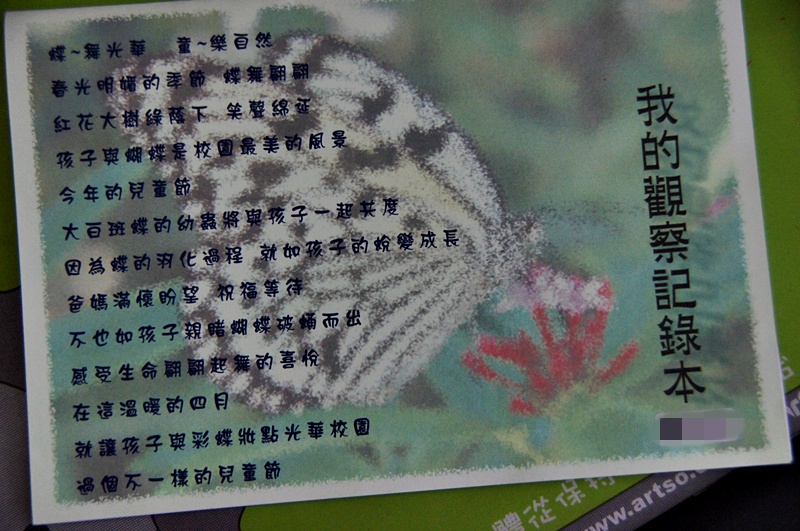 蝶~舞光華 童~樂自然
春光明媚的季節 蝶舞翩翩
紅花大樹綠蔭下 笑聲綿延
孩子與蝴蝶是校園最美的風景
今年的兒童節
大百斑蝶的幼蟲將與孩子一起共度
因為蝶的羽化過程 就如孩子的蛻變成長
爸媽滿懷盼望 祝福等待
不也如孩子親睹蝴蝶破蛹而出
感受生命翩翩起舞的喜悅
在這溫暖的四月
就讓孩子與彩蝶妝點光華校園
過個不一樣的兒童節
我的觀察記錄本
體從保持
www.artso.